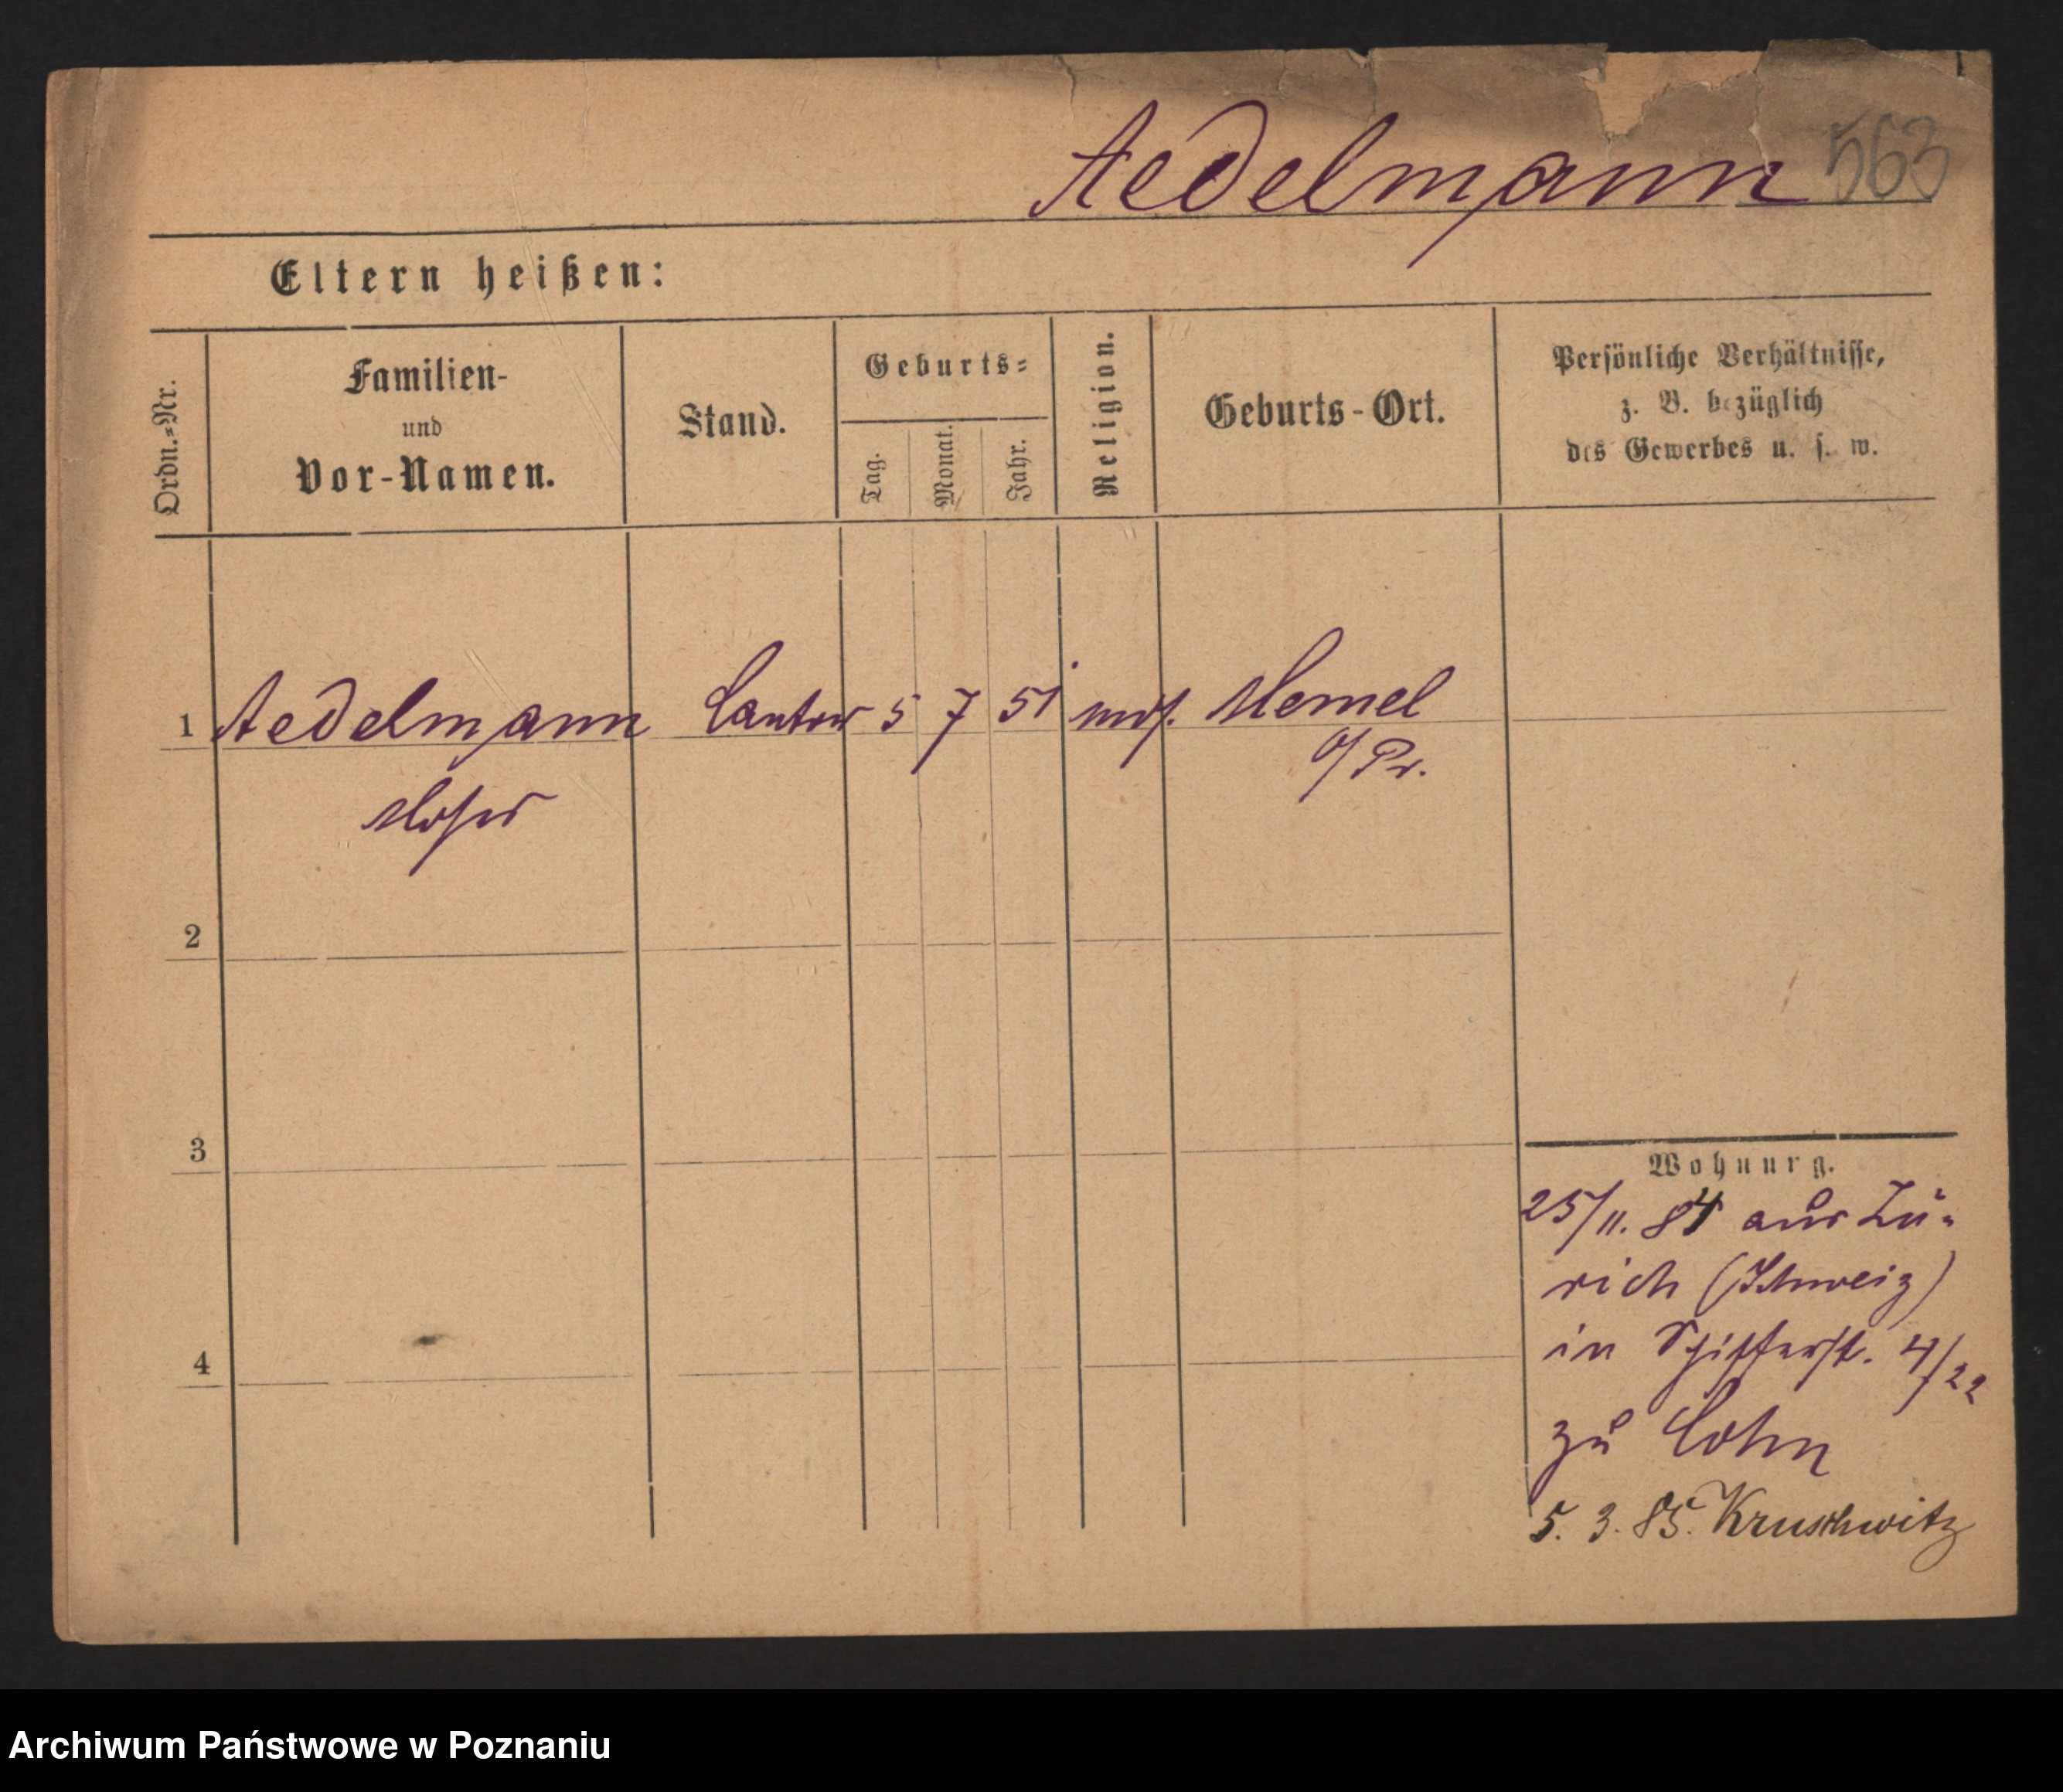 Aedelmann 563
Eltern heißen:
Ordn.=Nr.
Familien-
und
Vor-Namen.
Stand.
Geburts=
Tag.
Monat.
Jahr.
Religion.
Geburts-Ort.
Persönliche Verhältnisse,
z. B. bezüglich
des Gewerbes u. s. w.
1 Aedelmann Cantor 5 7 51 mos. Memel
O/Pr.
Moses
2
3
4
Wohnung.
25/11. 84 aus Zü=
rich (Schweiz)
in Schifferst. 4/22
zu Cohn
5. 3. 85. Kruschwitz
Archiwum Państwowe w Poznaniu